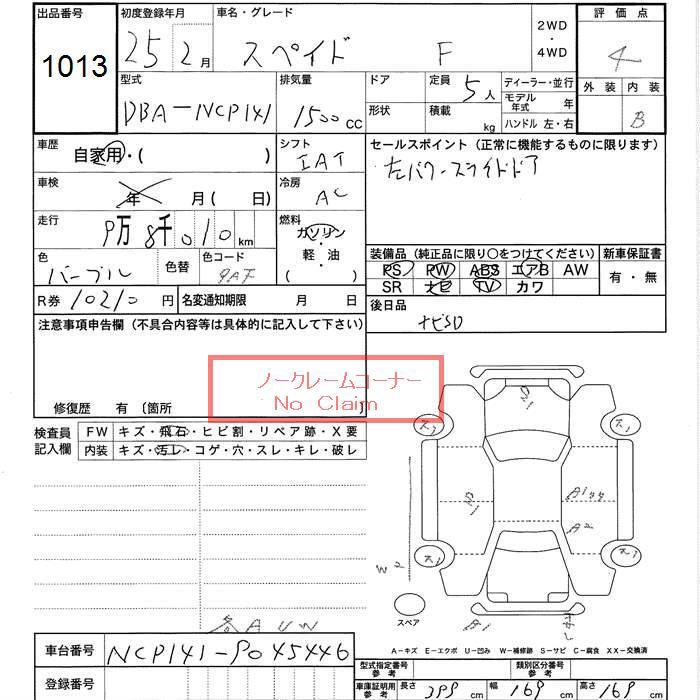 出品番号 初度登録年月 車名・グレード 2WD・4WD 評価点
1013 25 2月 スペイド F 4
型式 排気量 ドア 定員 5人 ディーラー・並行 外装 内装
DBA-NCP141 1500cc 形状 積載 kg モデル年式 年 B
ハンドル 左・右
車歴 シフト セールスポイント(正常に機能するものに限ります)
自家用・( ) IAT 左パワースライドドア
車検 年 月( 日) 冷房 AC
走行 9万 8千 0 1 0 km 燃料 ガソリン・軽・油 ( )
色 色替 色コード 装備品(純正品に限り○をつけてください) 新車保証書
パープル 9AF PS PW ABS エアB AW 有・無
SR ナビ TV カワ
R券 10210円 名変通知期限 月 日 後日品
ナビSD
注意事項申告欄(不具合内容等は具体的に記入して下さい)
ノークレームコーナー
No Claim
修復歴 有〔箇所 〕
検査員記入欄 FW キズ・飛石・ヒビ割・リペア跡・X要
内装 キズ・汚レ・コゲ・穴・スレ・キレ・破レ
A1
A2
W2
スペア
B1
各AUW
A-キズ E-エクボ U-凹み W-補修跡 S-サビ C-腐食 XX-交換済
車台番号 NCP141-9045446
登録番号
型式指定番号 参考 類別区分番号 参考
車庫証明用 参考 長さ 399 cm 幅 169 cm 高さ 169 cm